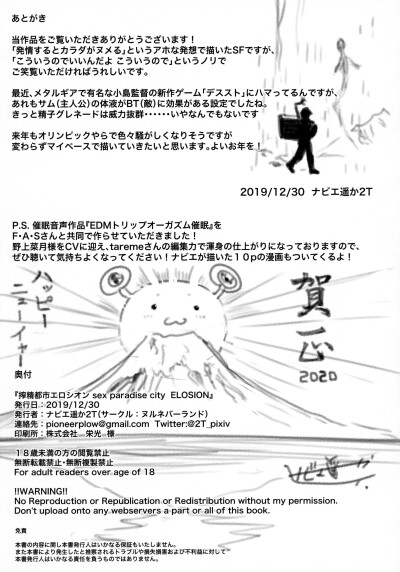 あとがき
当作品をご覧いただきありがとうございます!
「発情するとカラダがヌメる」というアホな発想で描いたSFですが、
「こういうのでいいんだよ こういうので」というノリで
ご笑覧いただければうれしいです。
最近、メタルギアで有名な小島監督の新作ゲーム「デススト」にハマってるんですが、
あれもサム(主人公)の体液がBT(敵)に効果がある設定でしたね。
きっと精子グレネードは威力抜群・・・・・・いやなんでもないです
来年もオリンピックやらで色々騒がしくなりそうですが
変わらずマイペースで描いていきたいと思います。よいお年を!
2019/12/30 ナビエ遥か2T
P.S. 催眠音声作品『EDMトリップオーガズム催眠』を
F・A・Sさんと共同で作らせていただきました!
野上菜月様をCVに迎え、taremeさんの編集力で渾身の仕上がりになっておりますので、
ぜひ聴いて気持ちよくなってください!ナビエが描いた10pの漫画もついてくるよ!
賀正
2020
ハッピー
ニューイヤー
奥付
『搾精都市エロシオン sex paradise city ELOSION』
発行日:2019/12/30
発行者:ナビエ遥か2T(サークル:ヌルネバーランド)
連絡先:pioneerplow@gmail.com Twitter:@2T_pixiv
印刷所:株式会社 栄光 様
18歳未満の方の閲覧禁止
無断転載禁止・無断複製禁止
For adult readers over age of 18
ナビエ遥か
!!WARNING!!
No Reproduction or Republication or Redistribution without my permission.
Don't upload onto any webservers a part or all of this book.
免責
本書の内容に関し本書発行人はいかなる保証もいたしません。
また本書により発生したと推察されるトラブルや損失損害および不利益に対して
本書発行人はいかなる責任を負うものではありません。